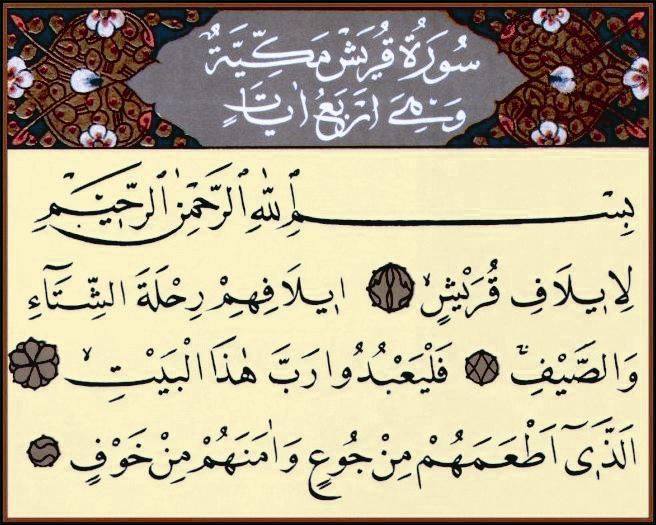 سُورَةُ قُرَيْشٍ مَكِّيَّةٌ
وَهِيَ اَرْبَعُ اٰيَاتٍ
بِسْــــــــمِ اللّٰهِ الرَّحْمٰنِ الرَّحِيمِ
لِا۪يلَافِ قُرَيْشٍۙ ا۪يلَافِهِمْ رِحْلَةَ الشِّتَٓاءِ
وَالصَّيْفِۚ فَلْيَعْبُدُوا رَبَّ هٰذَا الْبَيْتِۙ
اَلَّذ۪ٓي اَطْعَمَهُمْ مِنْ جُوعٍ وَاٰمَنَهُمْ مِنْ خَوْفٍ